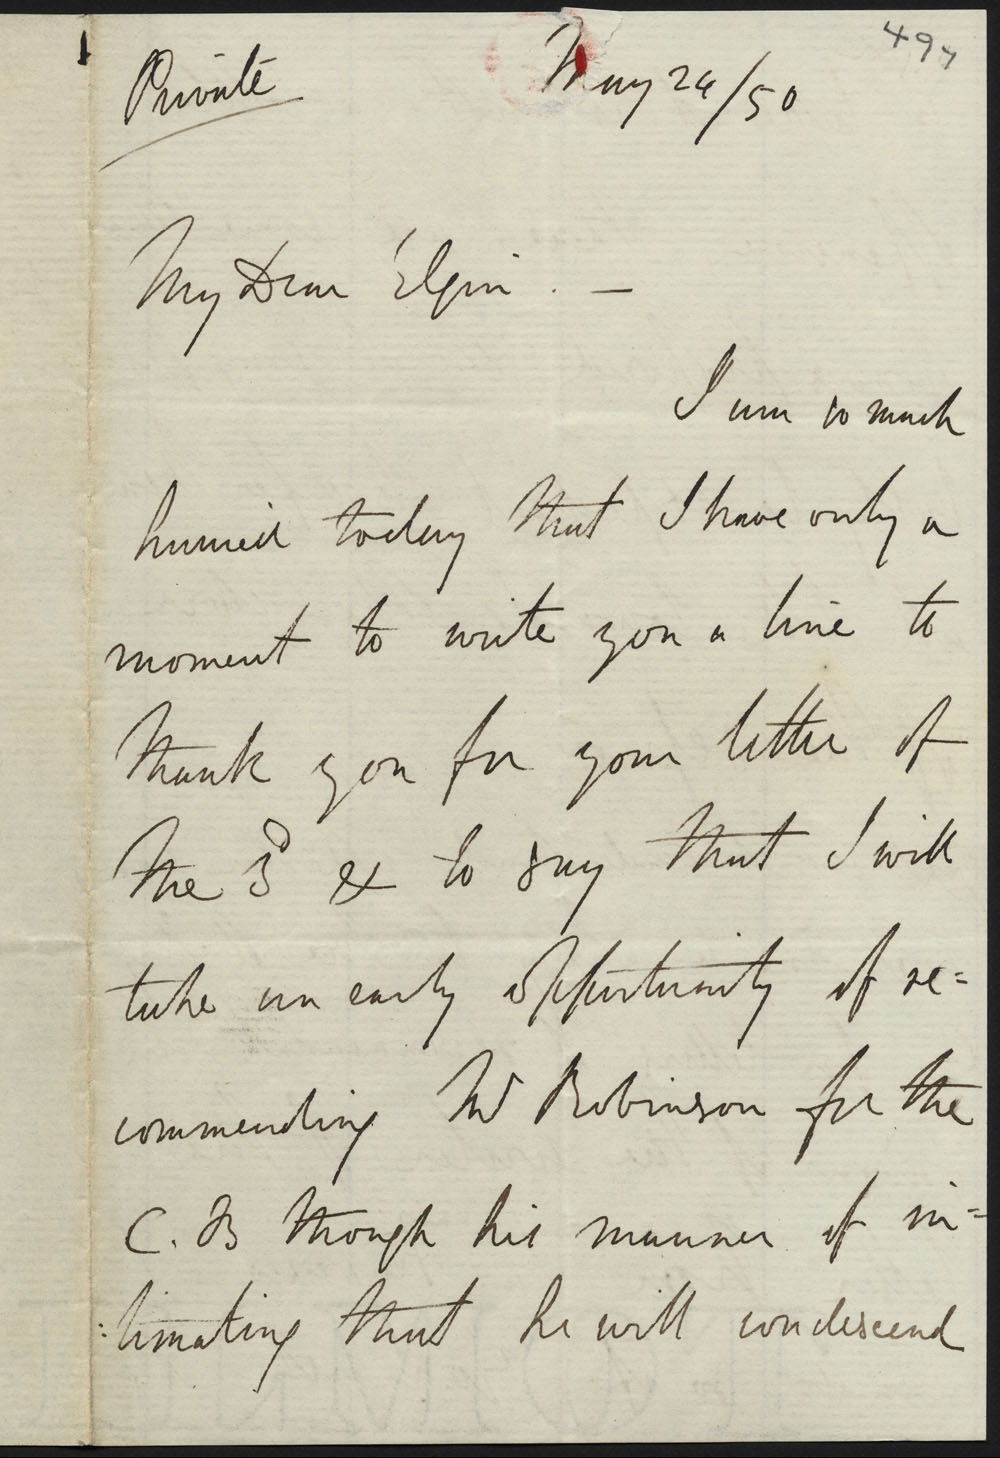 497
Private
May 24/50
My Dear Elgin . —
I am so much
hurried today that I have only a
moment to write you a line to
thank you for your letter of
the 3d & to say that I will
take an early opportunity of re=
commending Mr Robinson for the
C. B though his manner of in=
:timating that he will condescend